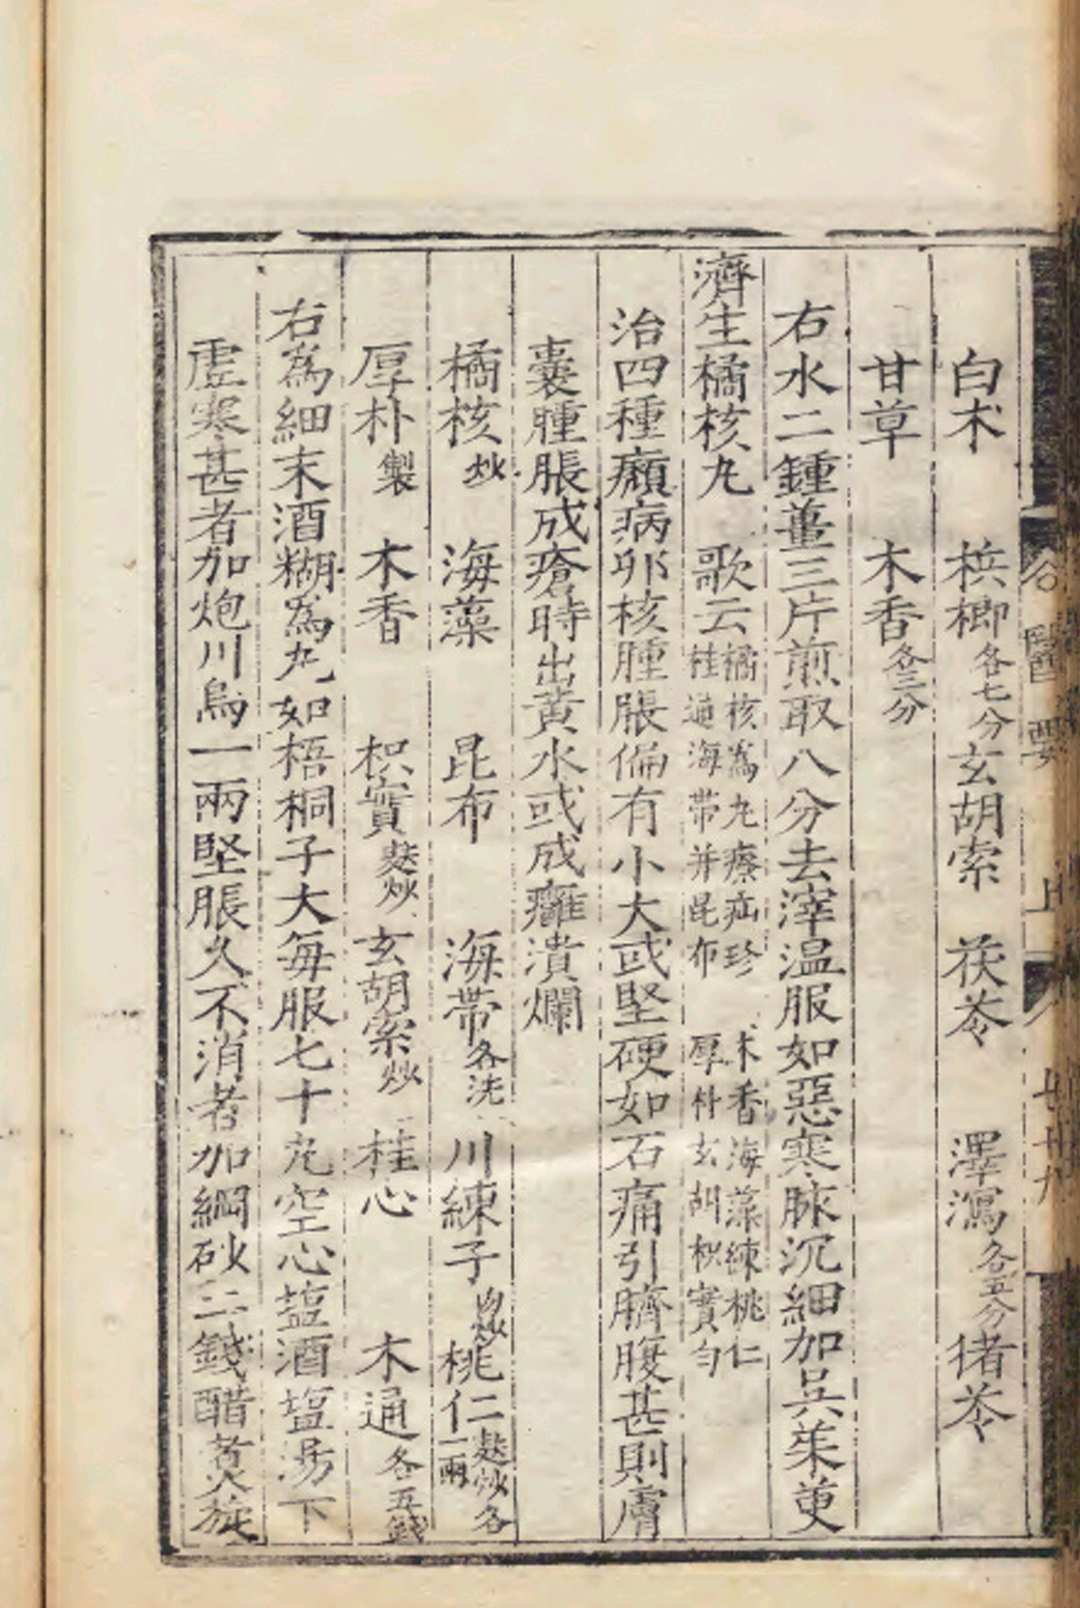 白朮　梹榔各七分玄胡索　茯苓　澤瀉各五分猪苓
甘草　木香各三分
右水二鍾薑三片煎取八分去滓温服如惡寒脉沉細加吳茱萸
濟生橘核丸　歌云橘核爲丸療疝珍　木香海藻練桃仁　桂通海帶并昆布　厚朴玄胡枳實勻
治四種㿗病卵核腫脹偏有小大或堅硬如石痛引臍腹甚則膚
囊腫脹成瘡時出黄水或成癰潰爛
橘核炒　海藻　昆布　海帶各洗　川練子肉炒桃仁麸炒各一兩
厚朴製　木香　枳實麸炒玄胡索炒　桂心　木通各五錢
右爲細末酒糊爲丸如梧桐子大每服七十丸空心盐酒塩湯下
虚寒甚者加炮川烏一兩堅脹久不消者加硇砂二錢醋煑旋
醫要　上　七十九